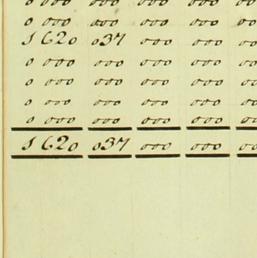 0 000 000 000 000 000
0 000 000 000 000 000
1 620 037 000 000 000
0 000 000 000 000 000
0 000 000 000 000 000
0 000 000 000 000 000
0 000 000 000 000 000
1 620 037 000 000 00